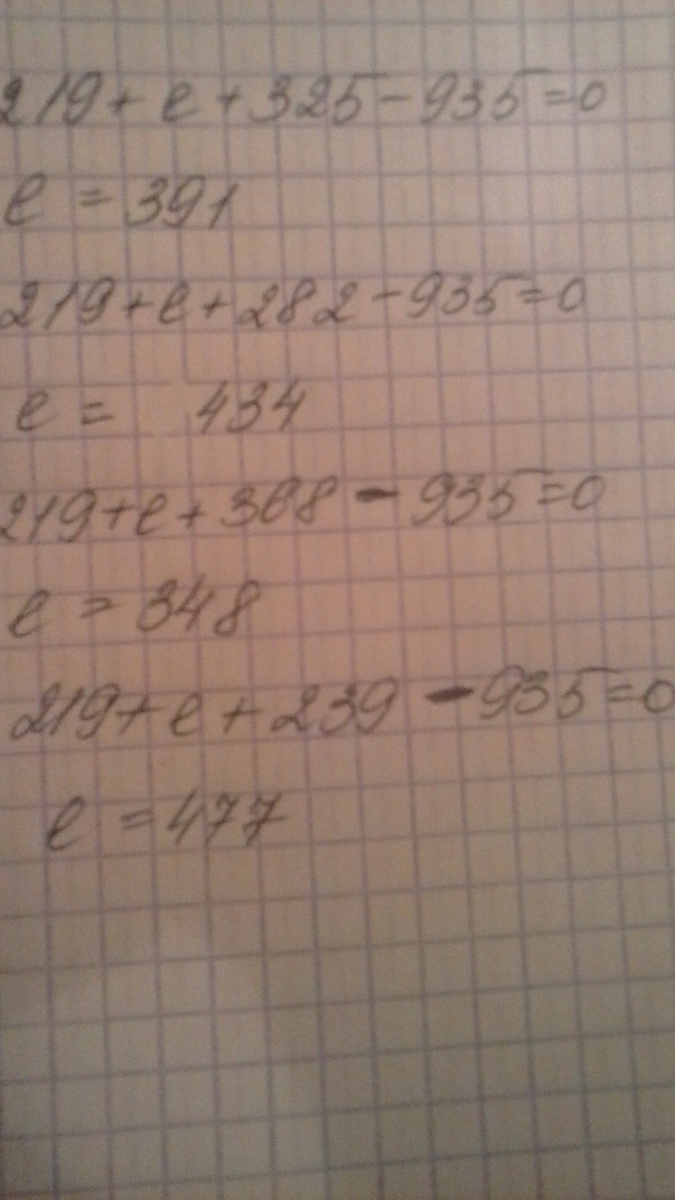 219+e+325-935=0
e=391
219+e+282-935=0
e= 434
219+e+368-935=0
e=348
219+e+239-935=0
e=477